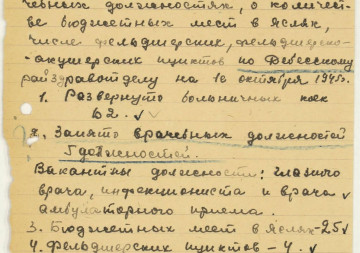 чебных должностях, о количест-
ве бюджетных мест в яслях,
числе фельдшерских, фельдшерско-
акушерских пунктов по Дебесскому
райздравотделу на 1е октября 1945г.
1. Развернуто больничных коек
62. ✓
2. Занято врачебных должностей
5 должностей.
Вакантны должности: глазного
врача, инфекциониста и врача ✓
амбулаторного приема.
3. Бюджетных мест в яслях-25 ✓
4. Фельдшерских пунктов - 4. ✓